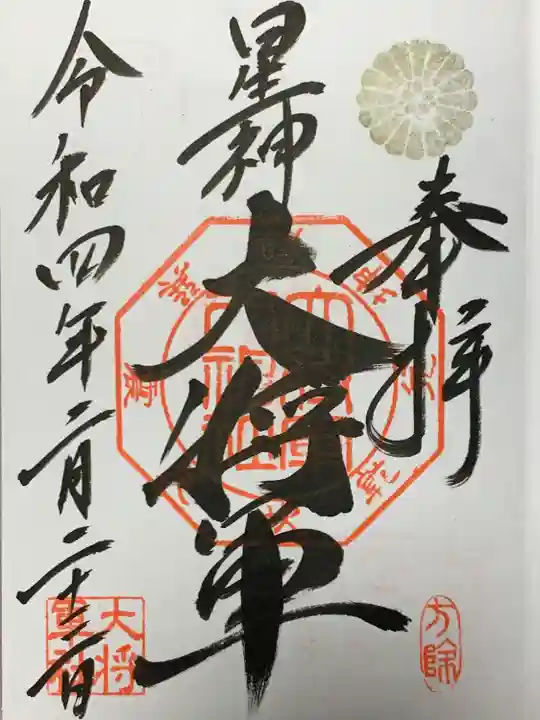 奉拝
星神
大将軍
令和四年二月二十三日
方除
大将
軍社